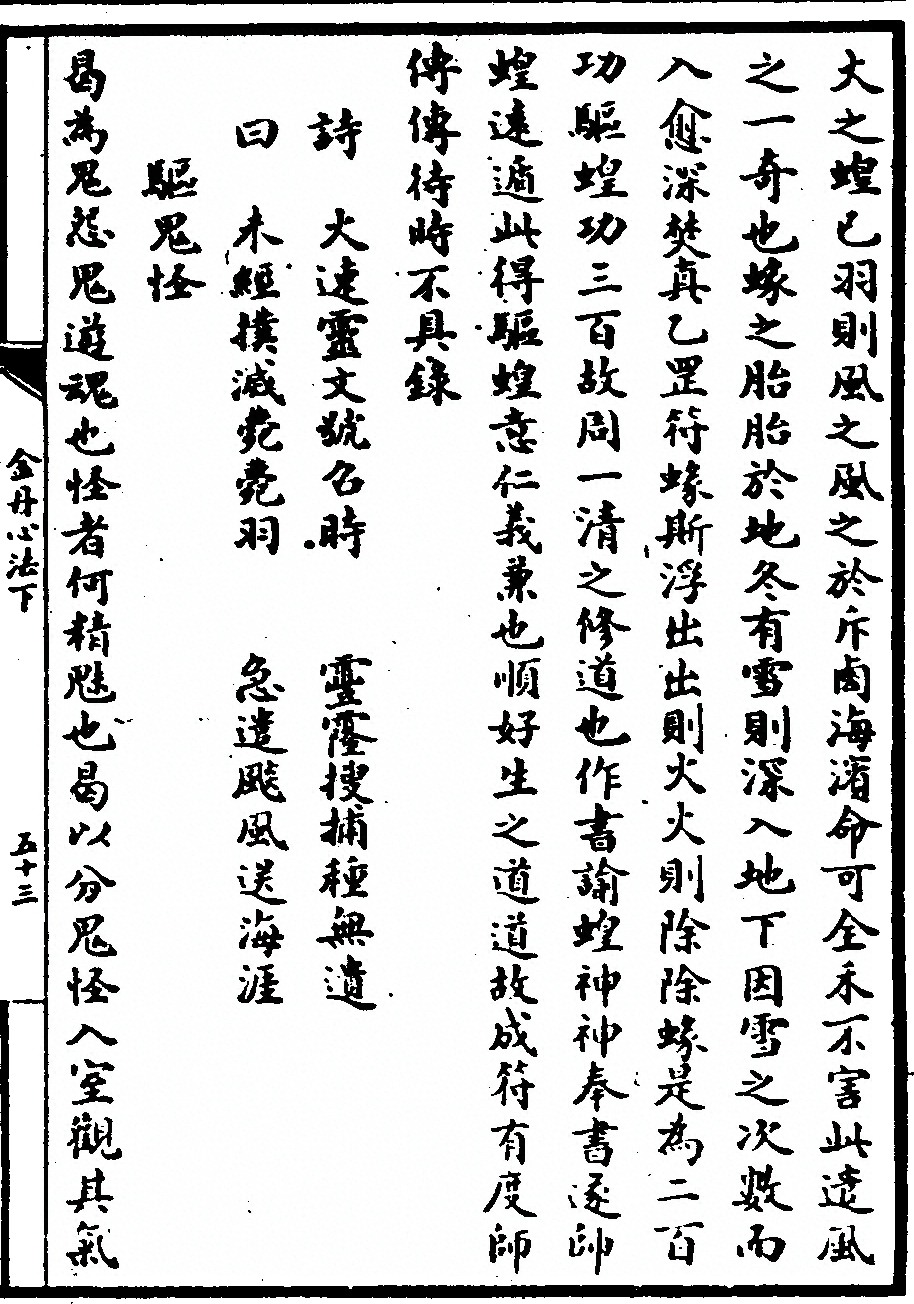 大之蝗已羽則風之風之於斥鹵海濱命可全禾不害此遣風
之一奇也蝝之胎胎於地冬有雪則深入地下因雪之次數而
入愈深焚真乙罡符蝝斯浮出出則火火則除除蝝是為二百
功驅蝗功三百故周一清之修道也作書諭蝗神神奉書遂帥
蝗遠遁此得驅蝗意仁義兼也順好生之道道故成符有度師
傳傳待時不具錄
詩 火速靈文號召時 靈霳搜捕種無遺
曰 未經撲滅薨薨羽 急遣颷風送海涯
驅鬼怪
曷為鬼怨鬼遊魂也怪者何精魅也曷以分鬼怪入室觀其氣
金丹心法下
五十三